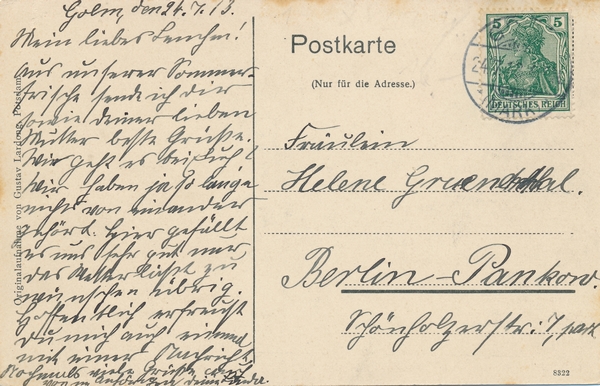 Golm, den 24.7.13.
Mein liebes Lenchen!
Aus unserer Sommer-
frische sende ich dir
sowie deiner lieben
Mutter beste Grüße.
Wie geht es bei Euch?
Wir haben ja so lange
nichts von einander
gehört. Hier gefällt
es uns sehr gut nur
das Wetter läßt zu
wünschen übrig.
Hoffentlich erfreust
du mich auch einmal
mit einer Nachricht.
Nochmals viele Grüße
von
Originalaufnahme von Gustav Lardong, Potsdam.
Postkarte
(Nur für die Adresse.)
5 5
DEUTSCHES REICH
MARK
Fräulein
Helene
Berlin-Pankow.
Schönholzerstr. 7, part
8322